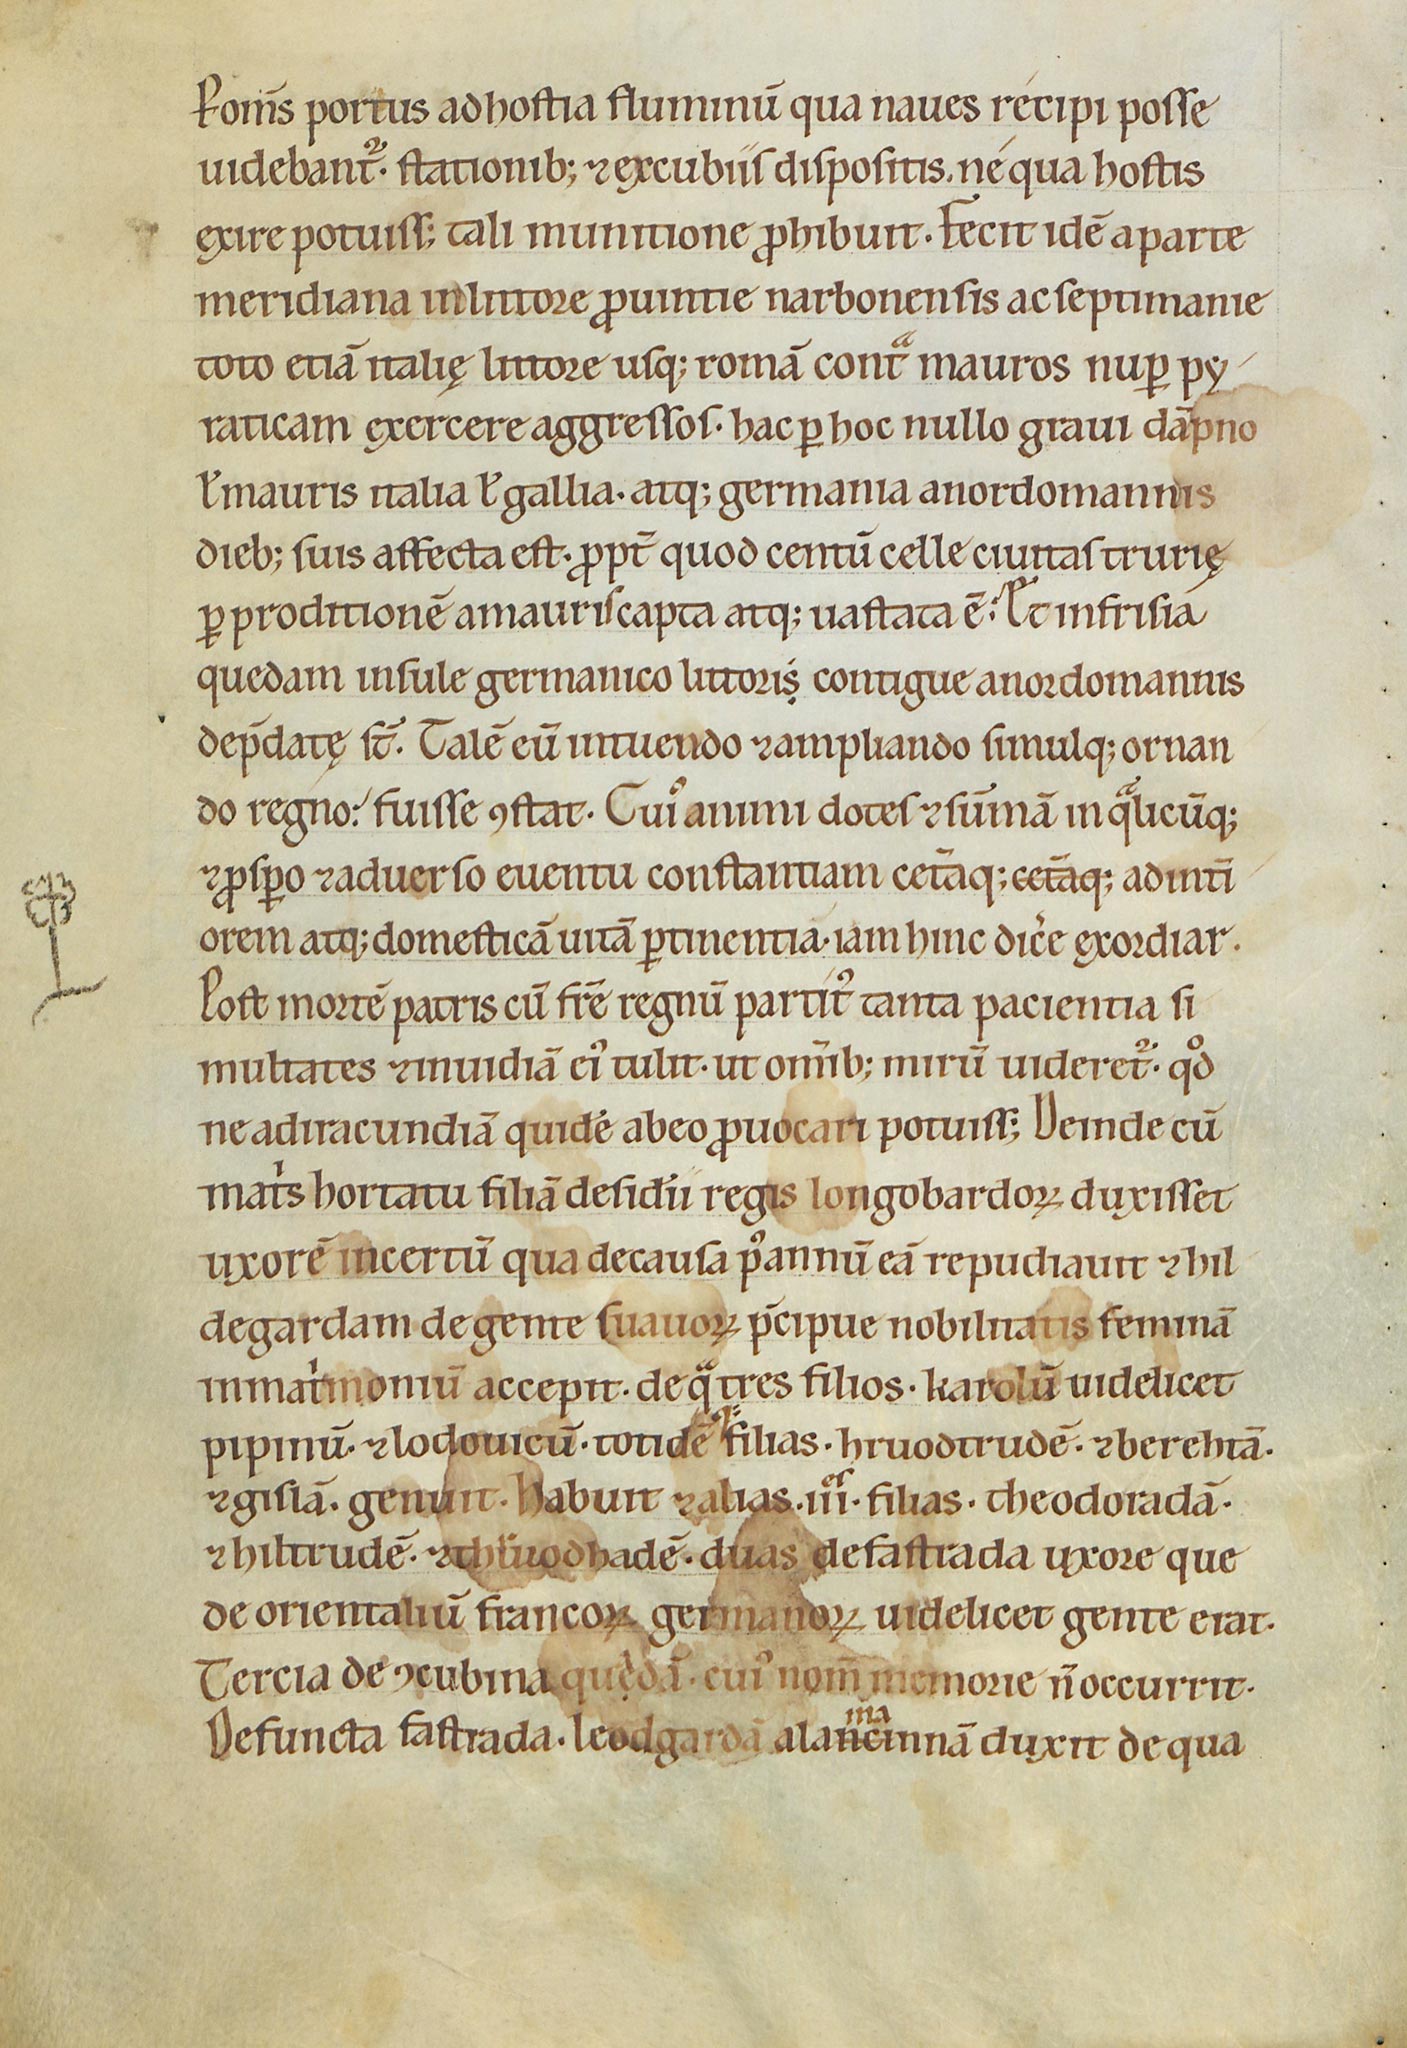 ꝑ om̄s portus ad hostia fluminū qua naues recipi posse
uidebant᷑. stationib; ⁊ excubiis dispositis. ne qua hostis
exire potuiss; tali munitione ꝓhibuit. Fecit idē a parte
meridiana in littore ꝓuintie narbonensis ac septimanie
toto etiā italię littore usq; romā contᵃ mauros nuꝑ py
raticam exercere aggressos. hac ꝑ hoc nullo graui dāpno
ł mauris italia ł gallia. atq; germania a nordomannis
dieb; suis affecta est. ꝓpt̄ quod centū celle ciuitas trurię
ꝑ proditionē a mauris capta atq; uastata ē. Et in frisia
quedam insule germanico littoris̩ contigue a nordomannis
dep̄datę st̄. Talē eū intuendo ⁊ ampliando simulq; ornan
do regno. fuisse ꝯstat. Cuiꝰ animi dotes ⁊ sūmā in qᵃlicūq;
⁊ ꝓsꝑo ⁊ aduerso euentu constantiam cet̄aq; cet̄aq; ad inti
orem atq; domesticā uitā ꝑtinentia. iam hinc dic̓e exordiar.
Post mortē patris cū fr̄e regnū partitꝰ tanta pacientia si
multates ⁊ inuidiā eiꝰ tulit. ut om̄ib; mirū uideret᷑. qᵒd
ne ad iracundiā quidē ab eo ꝓuocari potuiss; Deinde cū
matⁱs hortatu filiā desid̓ii regis longobardoꝝ duxisset
uxorē incertū qua de causa pꝰ annū eā repudiauit ⁊ hil
degardam de gente suauoꝝ p̄cipue nobilitatis feminā
in matⁱmoniū accepit. de qᵃ tres filios. karolū uidelicet
pipinū. ⁊ lodouicū. totidē filias. hruodtrudē. ⁊ berehtā.
⁊ gislā. genuit. Habuit ⁊ alias .iii.ᵉˢ filias. theodoradā.
⁊ hiltrudē. ⁊ hruodhadē. duas de fastrada uxore que
de orientaliū francoꝝ germanoꝝ uidelicet gente erat.
Tercia de ꝯcubina quędā. cuiꝰ nom̄ memorie n̄ occurrit.
Defuncta fastrada. leodgardā alancinnā ma duxit de qua